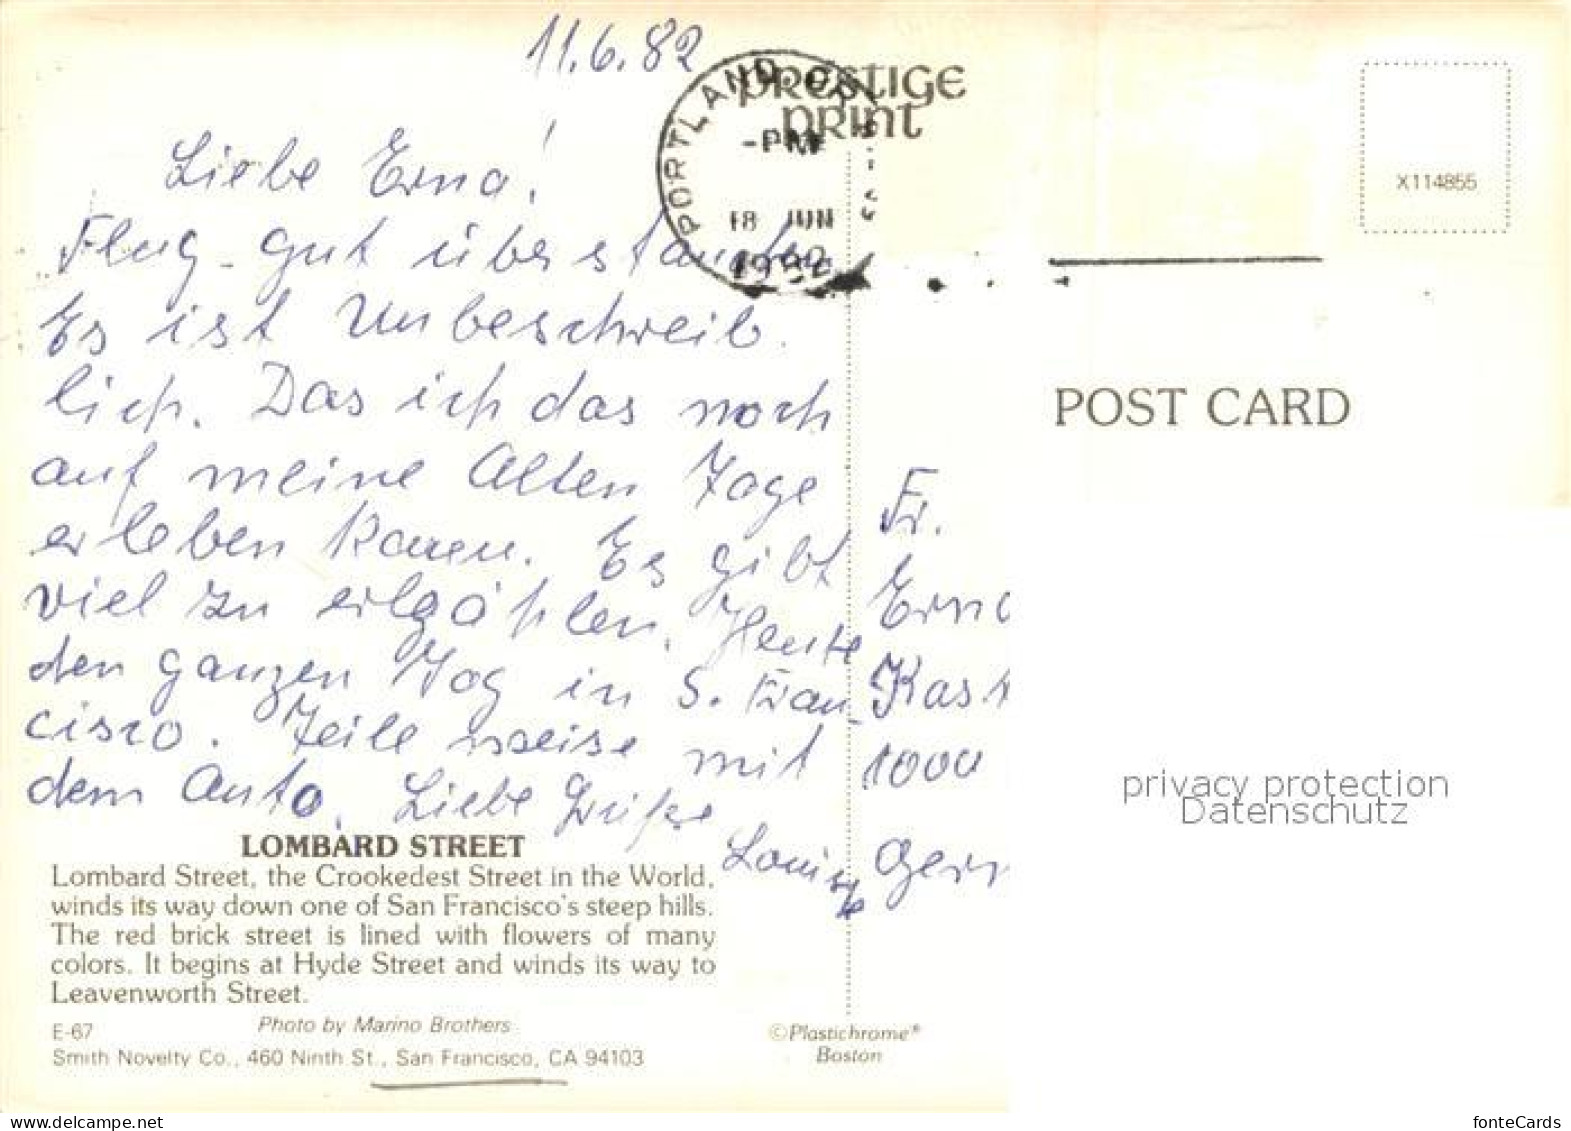 11.6.82
Liebe Erna!
Flug gut überstanden
Es ist Unbeschreib
lich. Das ich das noch
auf meine Alten Tage
erleben kann. Es gibt
viel zu erlgählen. Heute
den ganzen Tag in S. Fran-
cisco. Teile weise mit
dem Auto. Liebe Grüße
Louise
LOMBARD STREET
Lombard Street, the Crookedest Street in the World,
winds its way down one of San Francisco's steep hills.
The red brick street is lined with flowers of many
colors. It begins at Hyde Street and winds its way to
Leavenworth Street.
E-67
Photo by Marino Brothers
Smith Novelty Co., 460 Ninth St., San Francisco, CA 94103
©Plastichrome®
Boston
prestige
print
PORTLAND, OR
-PM
18 JUN
1982
X114855
POST CARD
Fr.
Erna
Kast
1000
Germ
privacy protection
Datenschutz
www.delcampe.net
fonteCards